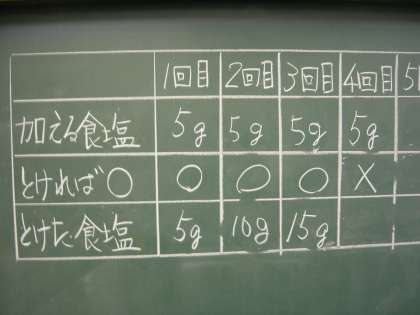 1回目 2回目 3回目 4回目 5
加える食塩 5g 5g 5g 5g
とければ○ ○ ○ ○ ×
とけた食塩 5g 10g 15g